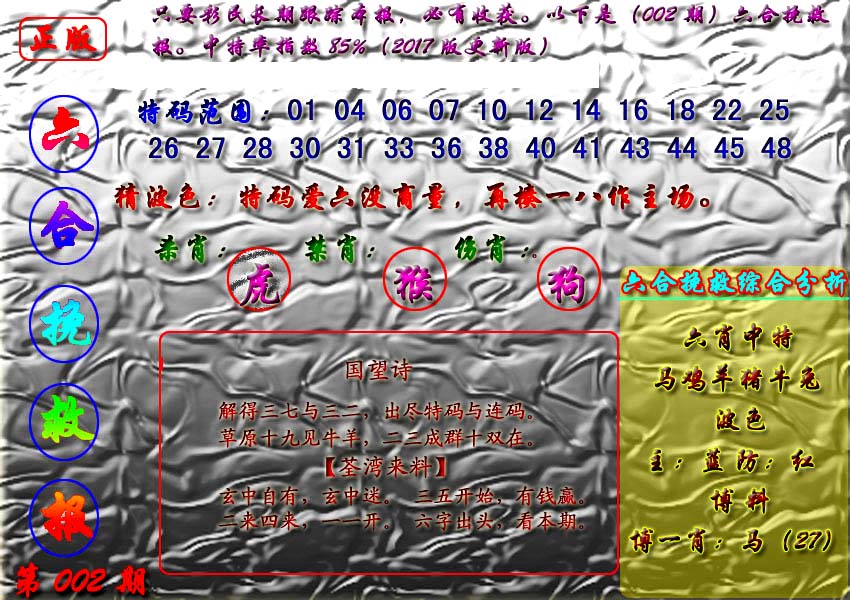 正版
只要彩民长期跟踪本报，必有收获。以下是（002期）六合挽救
报。中特率指数85%（2017版更新版）
六合挽救报
第002期
特码范围：01 04 06 07 10 12 14 16 18 22 25
26 27 28 30 31 33 36 38 40 41 43 44 45 48
猜波色：特码爱六没商量，再搂一八作主场。
杀肖：虎 禁肖：猴 伤肖：狗
国望诗
解得三七与三二，出尽特码与连码。
草原十九见牛羊，二三成群十双在。
【荃湾来料】
玄中自有，玄中迷。 三五开始，有钱赢。
二来四来，一一开。 六字出头，看本期。
六合挽救综合分析
六肖中特
马鸡羊猪牛兔
波色
主：蓝防：红
博料
博一肖：马（27）